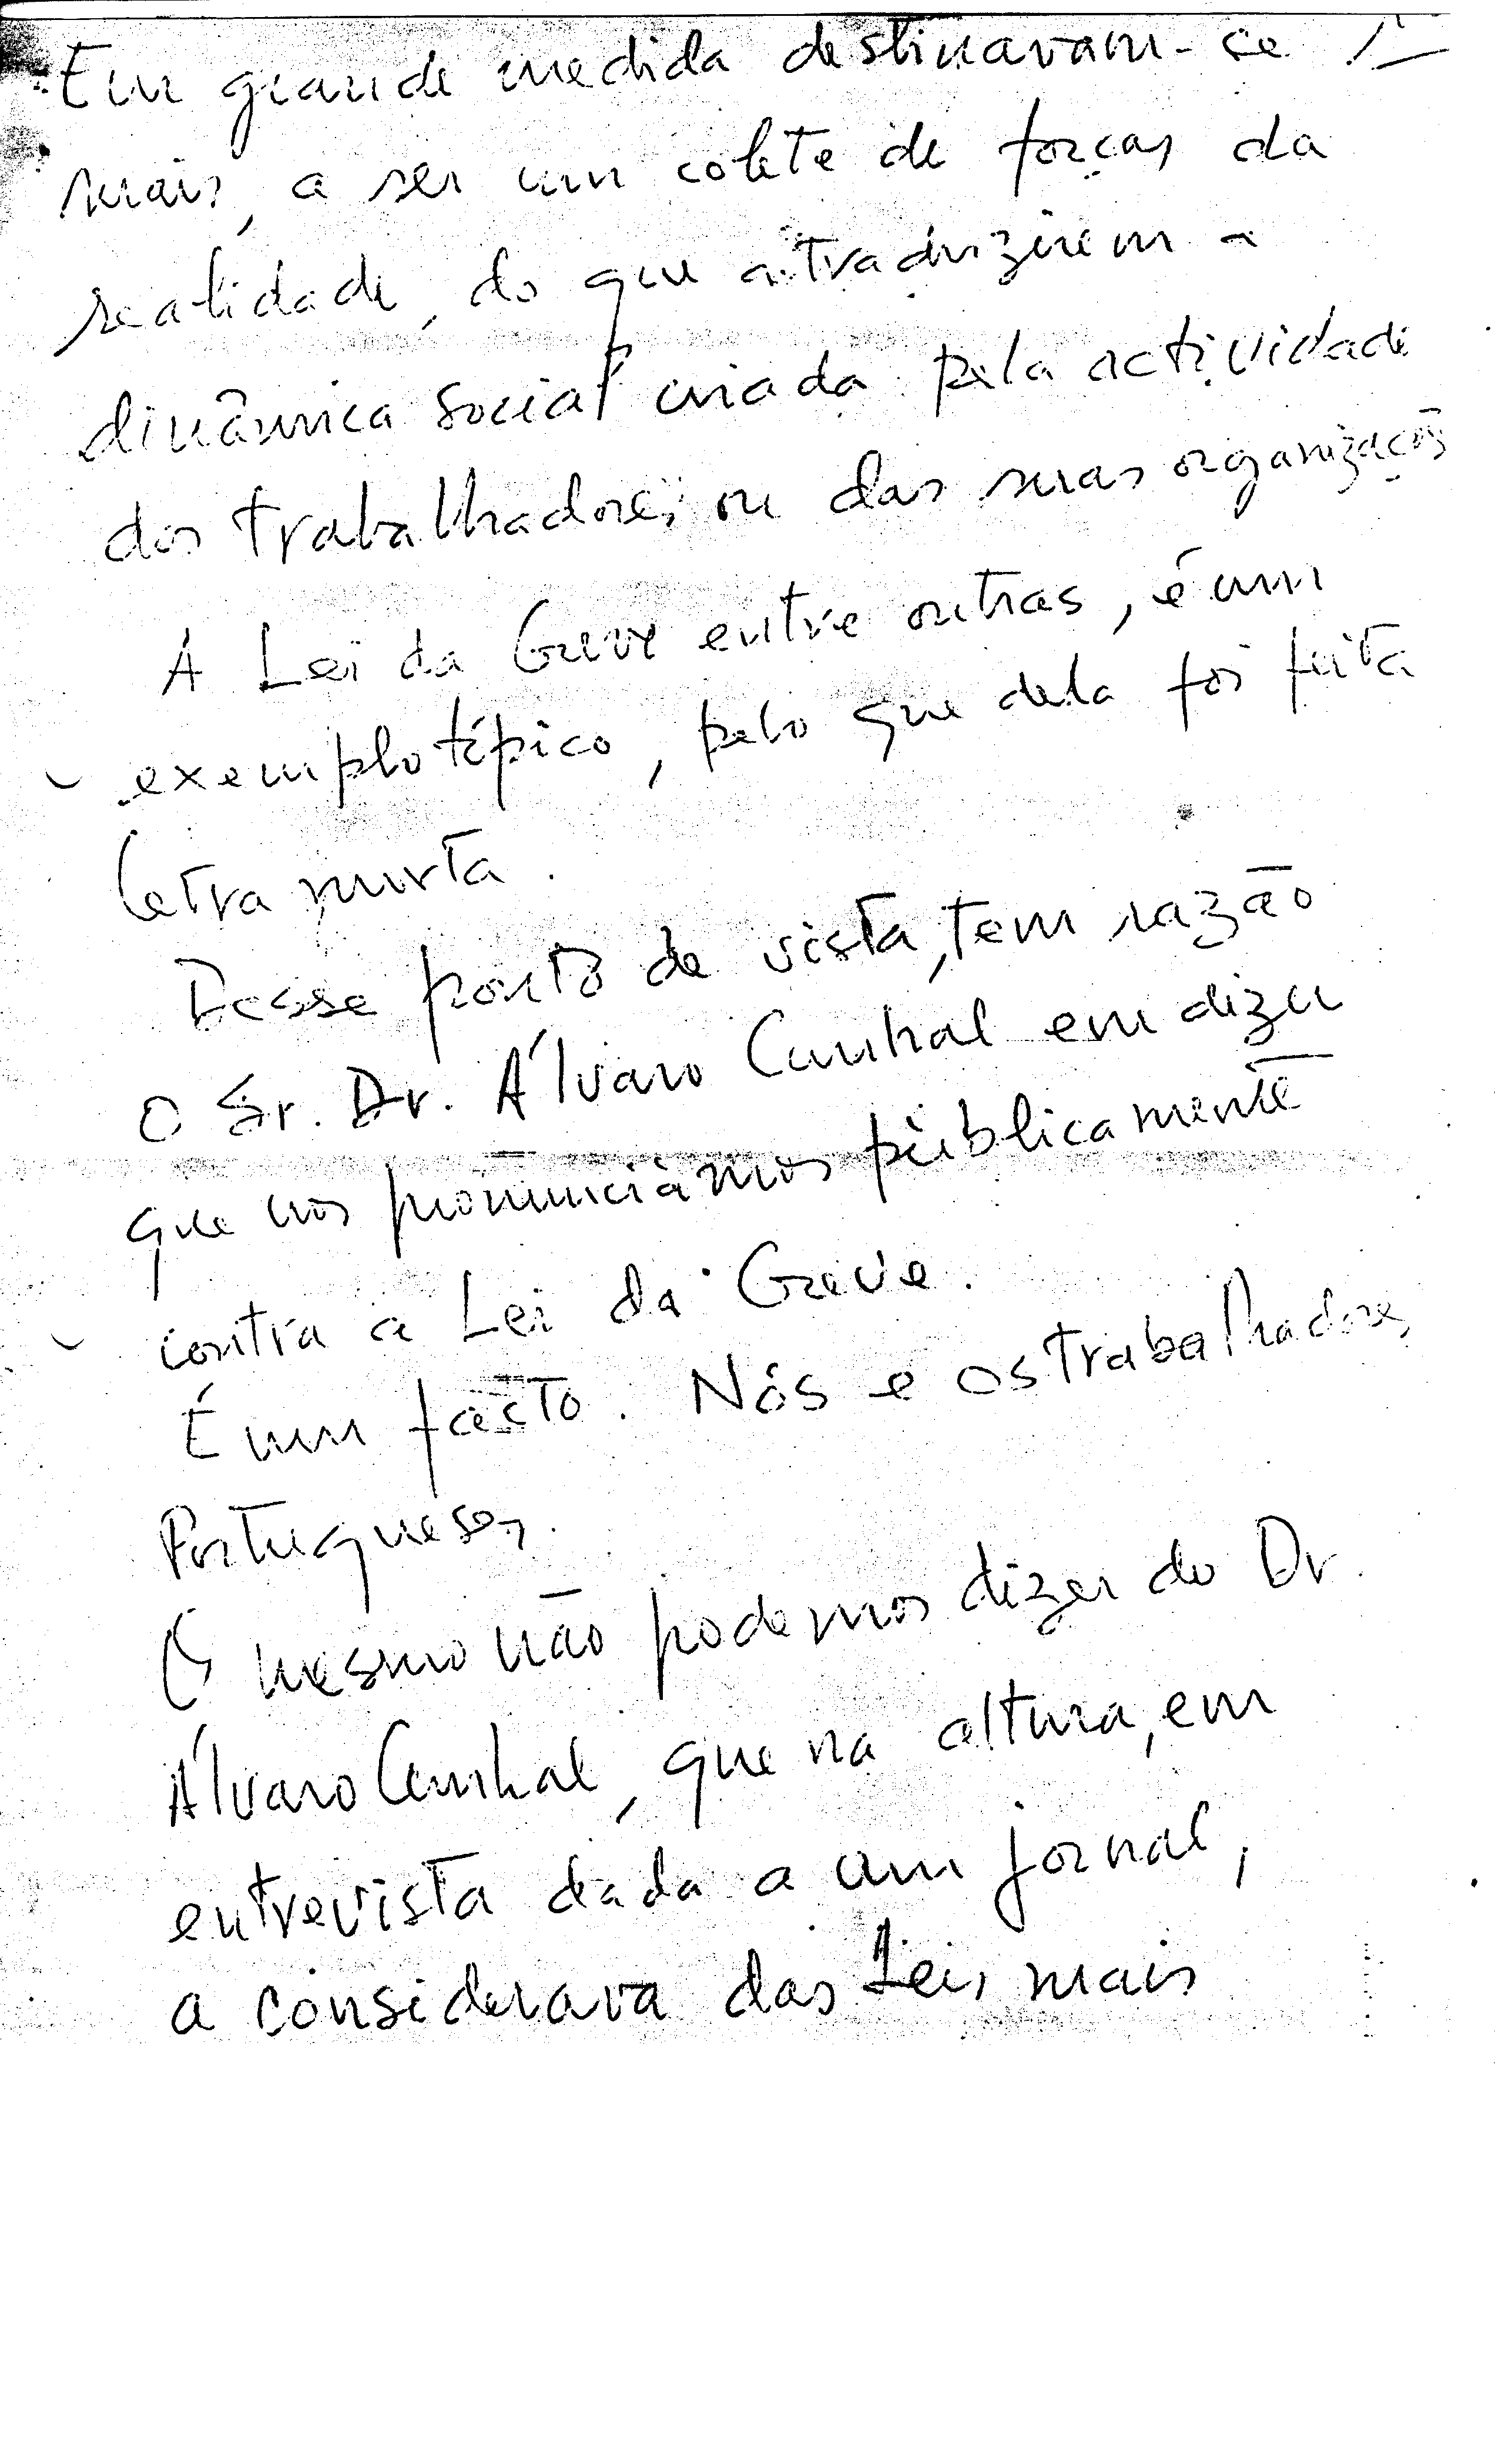 Em grande medida destinavam-se
mais, a ser um colete de forças da
realidade, do que a traduzirem a
dinâmica social criada pela actividade
dos trabalhadores, ou das suas organizações
A Lei da Greve entre outras, é um
exemplo típico, pelo que dela foi feita
letra morta.
Desse ponto de vista, tem razão
o Sr. Dr. Álvaro Cunhal em dizer
que nos pronunciámos públicamente
contra a Lei da Greve.
É um facto. Nós e os trabalhadores
Portugueses.
O mesmo não podemos dizer do Dr.
Álvaro Cunhal, que na altura, em
entrevista dada a um jornal,
a considerava das Leis mais